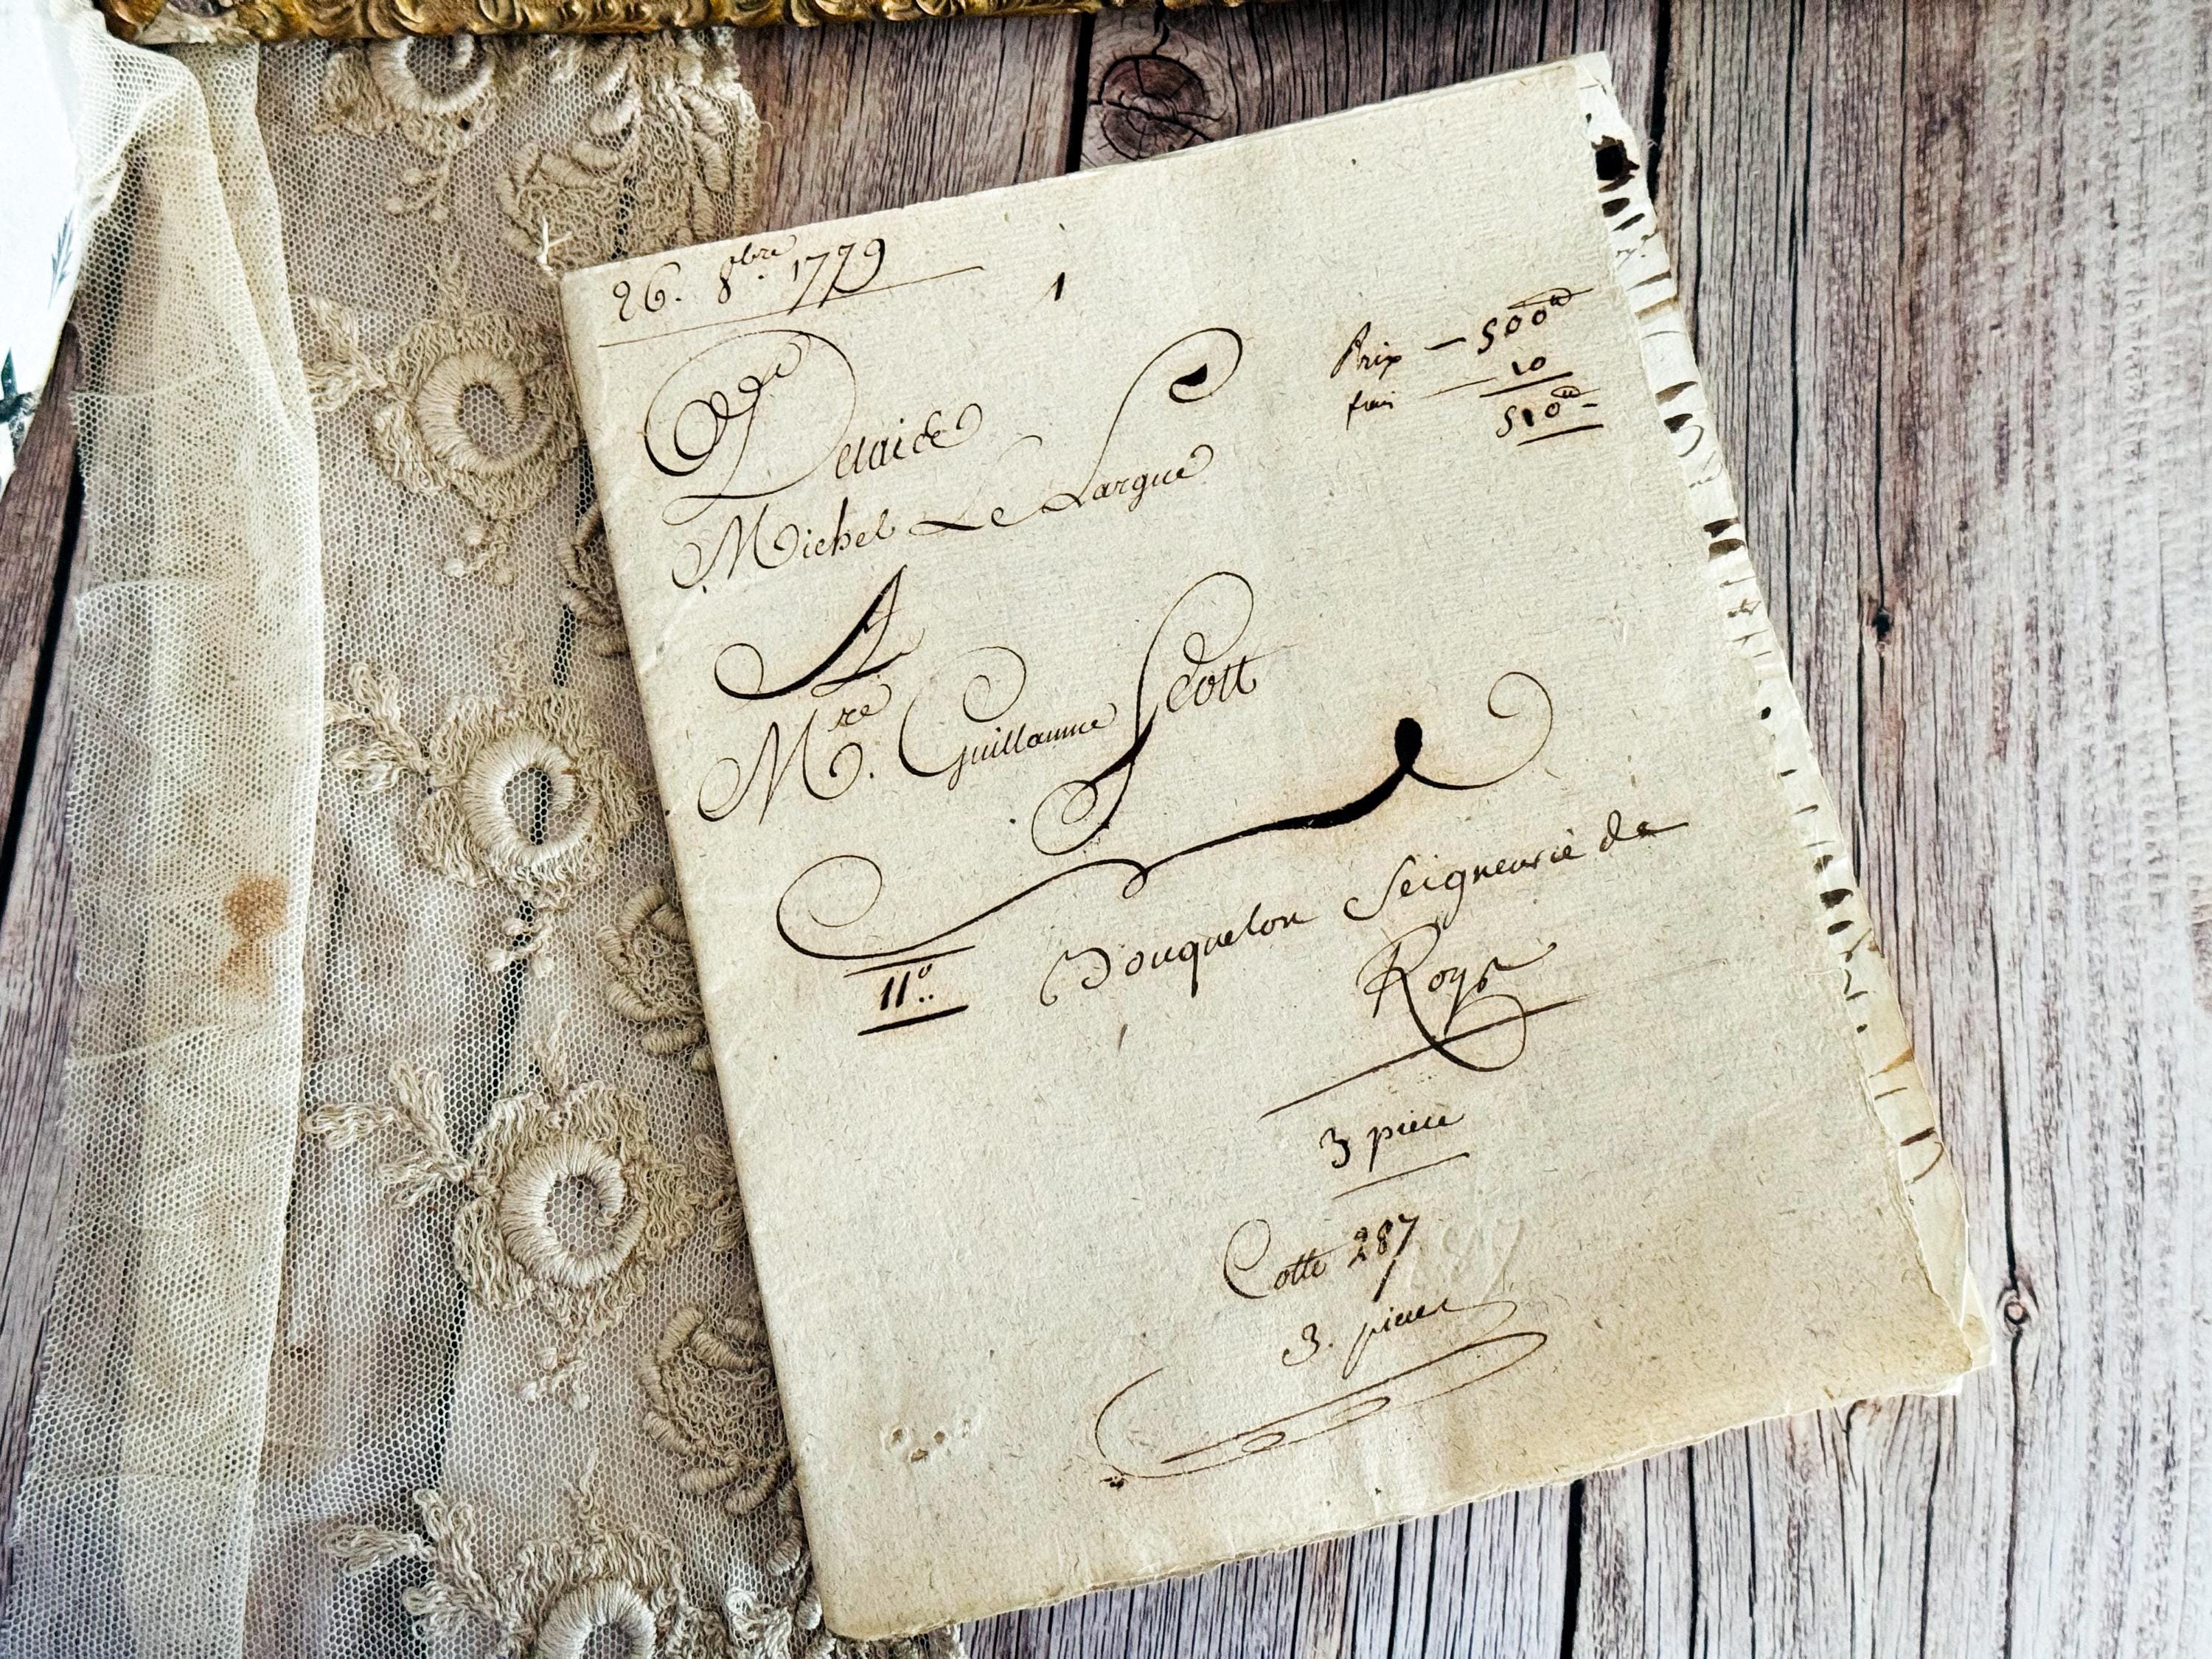 26. 8.bre 1779
1
Prix — 500ᵗᵗ
frais — 10
510ᵗᵗ
Delaide
Michel Le Largue
A
Mre. Guillaume Scott
11°..
Bouquelon Seigneurie de
Roys
3 piece
Cotte 287
3. pieces